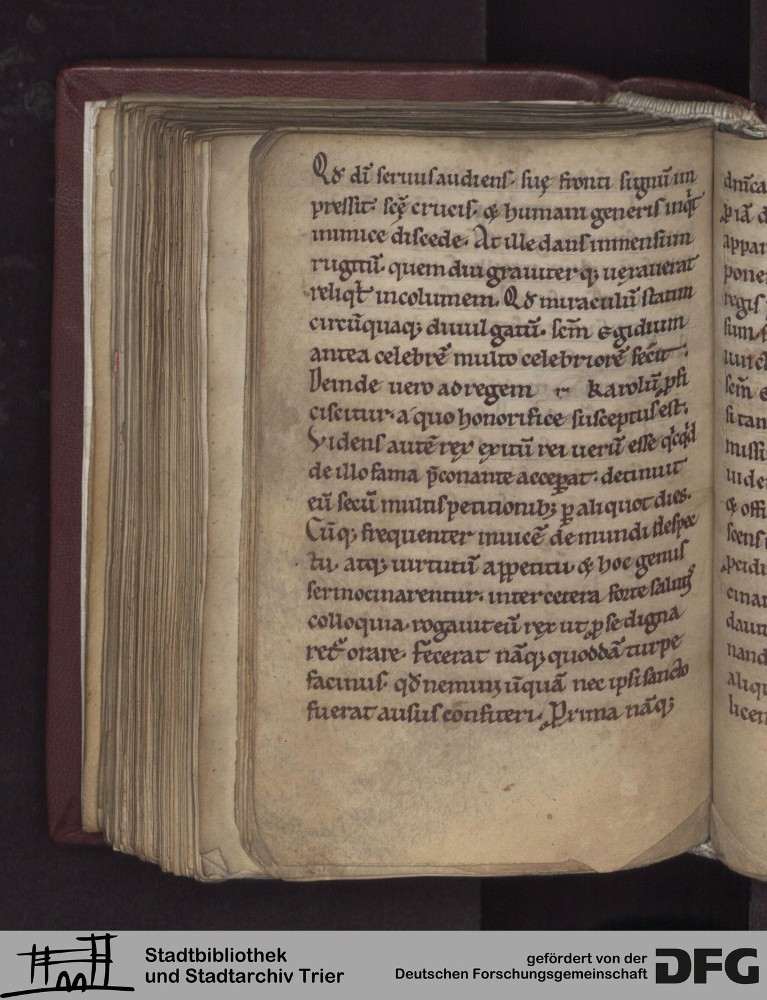 Qđ dī seruus audiens. suę fronti signū im
pressit. scę̄ crucis. & humani generis inqt
inimice discede. At ille dans immensum
rugitū. quem diu grauiter q; uexauerat
reliqt incolumem. Qđ miraculū statim
circūquaq; diuulgatū. scm̄ egidium
antea celebrē multo celebriorē fecit.
Deinde uero ad regem r karolū pfi
ciscitur. a quo honorifice susceptus est.
Videns autē rex exitū rei uerū esse qcqd
de illo fama p̄conante acceperat. detinuit
eū secū multis petitionib; p aliquot dies.
Cūq; frequenter inuicē de mundi despec
tu. atq; uirtutū appetitu. & hoc genus
sermocinarentur. inter cetera forte salutis
colloquia. rogauit eū rex ut p se digna
ret orare. Fecerat nāq; quoddā turpe
facinus. qđ nemini ūquā nec ipsi sancto
fuerat ausus confiteri. Prima nāq;
dn̄ica
p iā d
appar
pone
regis
sum
scm̄ e
si tan
missi
uide
& offi
scens
pcidi
cinar
dauit
nand
aliqu
licen
Stadtbibliothek
und Stadtarchiv Trier
gefördert von der
Deutschen Forschungsgemeinschaft
DFG